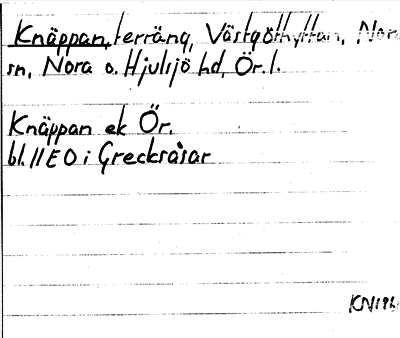 Knäppan, terräng, Västgöthyttan, Nora
sn, Nora o. Hjulsjö hd, Ör. l.
Knäppan ek Ör.
bl. 11EO i Grecksåsar
KN196